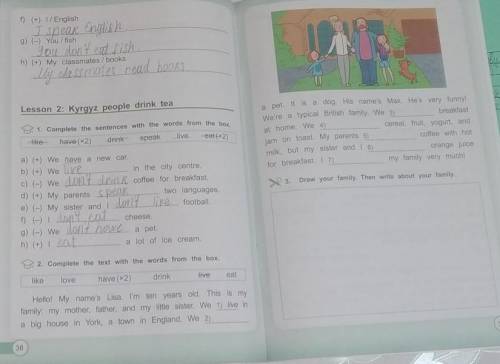 f) (+) I / English
I speak English
g) (–) You / fish
You don't eat fish
h) (+) My classmates / books
My classmates read books
Lesson 2: Kyrgyz people drink tea
1. Complete the sentences with the words from the box.
like have (×2) drink speak live eat (×2)
a) (+) We have a new car.
b) (+) We live in the city centre.
c) (–) We don't drink coffee for breakfast.
d) (+) My parents speak two languages.
e) (–) My sister and I don't like football.
f) (–) I don't eat cheese.
g) (–) We don't have a pet.
h) (+) I eat a lot of ice cream.
2. Complete the text with the words from the box.
like love have (×2) drink live eat
Hello! My name's Lisa. I'm ten years old. This is my
family: my mother, father, and my little sister. We 1) live in
a big house in York, a town in England. We 2)
36
a pet. It is a dog. His name's Max. He's very funny!
We're a typical British family. We 3) breakfast
at home. We 4) cereal, fruit, yogurt, and
jam on toast. My parents 5) coffee with hot
milk, but my sister and I 6) orange juice
for breakfast. I 7) my family very much!
3. Draw your family. Then write about your family.